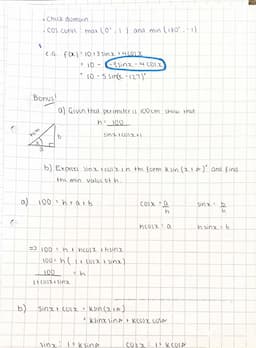 • Check domain
• cos curve : max (0°, 1) and min (180°, -1)
e.g. f(x) = 10 + 3sinx + 4cosx
= 10 - 3sinx - 4cosx
= 10 - 5 sin(x - 127)°
Bonus!
a) Given that perimeter is 100cm show that
h = 100
sinx + cosx + 1
b) Express sinx + cosx in the form k sin (x + )° and find
the min value of h.
a) 100 = h + a + b
cosx = a
h
sinx = b
h
hcosx = a
hsinx = b
=> 100 = h + hcosx + hsinx
100 = h ( 1 + cosx + sinx)
100 = h
1 + cosx + sinx
b) sinx + cosx = ksin(x + )